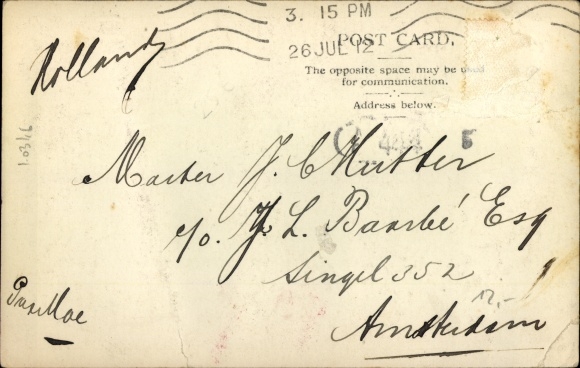 3. 15 PM
26 JUL 12
Holland
POST CARD.
The opposite space may be used
for communication.
Address below.
Master J. C. Mutter
c/o. J. L. Baarbé Esq
Singel 352
12.-
Amsterdam